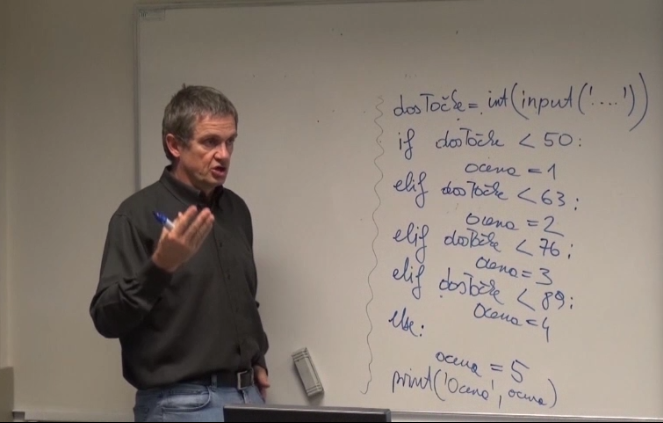 dosTočke = int(input('....'))
if dosTočke < 50:
ocena = 1
elif dosTočke < 63:
ocena = 2
elif dosTočke < 76:
ocena = 3
elif dosTočke < 89:
ocena = 4
else:
ocena = 5
print('Ocena', ocena)